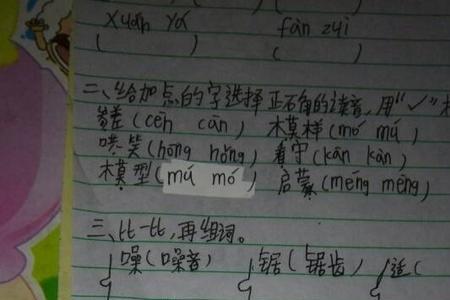 xuān yá fàn zuì
( ) (
二、给加点的字选择正确的读音,用“✓”
参差(cēn cān) 模样(mó mú)
哄笑(hōng hǒng) 看守(kān kàn)
模型(mú mó) 启蒙(mēng méng)
三、比一比,再组词。
噪(噪音) 锯(锯齿)